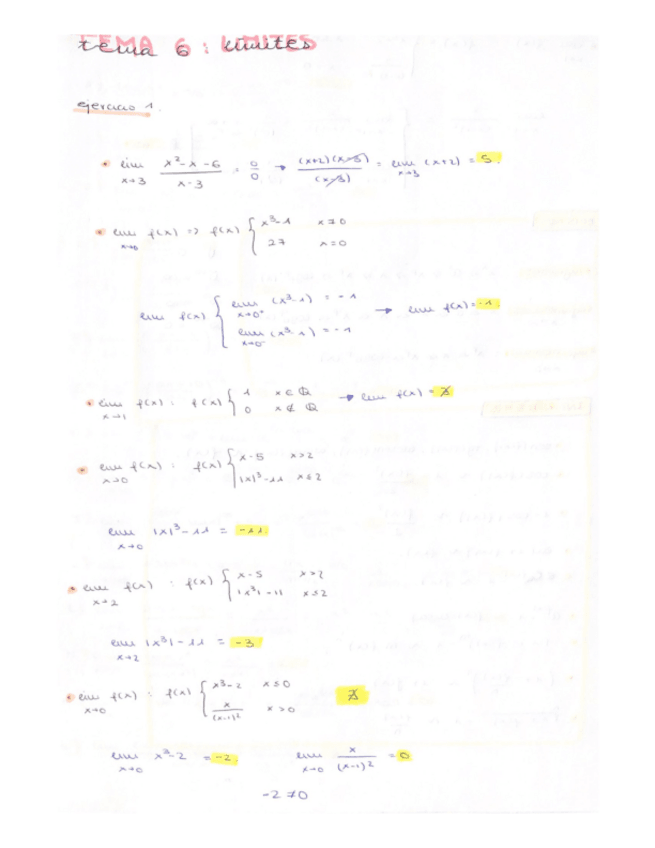 tema 6 : límites
ejercicio 1.
• lim x→3 x²-x-6 / x-3 = 0/0 → (x+2)(x-3) / (x-3) = lim x→3 (x+2) = 5.
• lim x→0 f(x) => f(x) { x³-1 x≠0
27 x=0
lim f(x) { lim x→0⁺ (x³-1) = -1 → lim f(x) = -1.
lim x→0⁻ (x³-1) = -1
• lim x→1 f(x) : f(x) { 1 x∈ℚ → lim f(x) = ∄
0 x∉ℚ
• lim x→0 f(x) : f(x) { x-5 x>2
|x|³-11 x≤2
lim x→0 |x|³-11 = -11
• lim x→2 f(x) : f(x) { x-5 x>2
|x³|-11 x≤2
lim x→2 |x³|-11 = -3
• lim x→0 f(x) : f(x) { x³-2 x≤0 ∄
x / (x-1)² x>0
lim x→0 x³-2 = -2. lim x→0 x / (x-1)² = 0
-2≠0